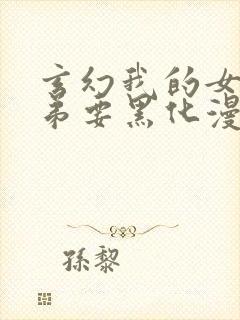 玄幻我的女
弟要黑化漫
孫黎